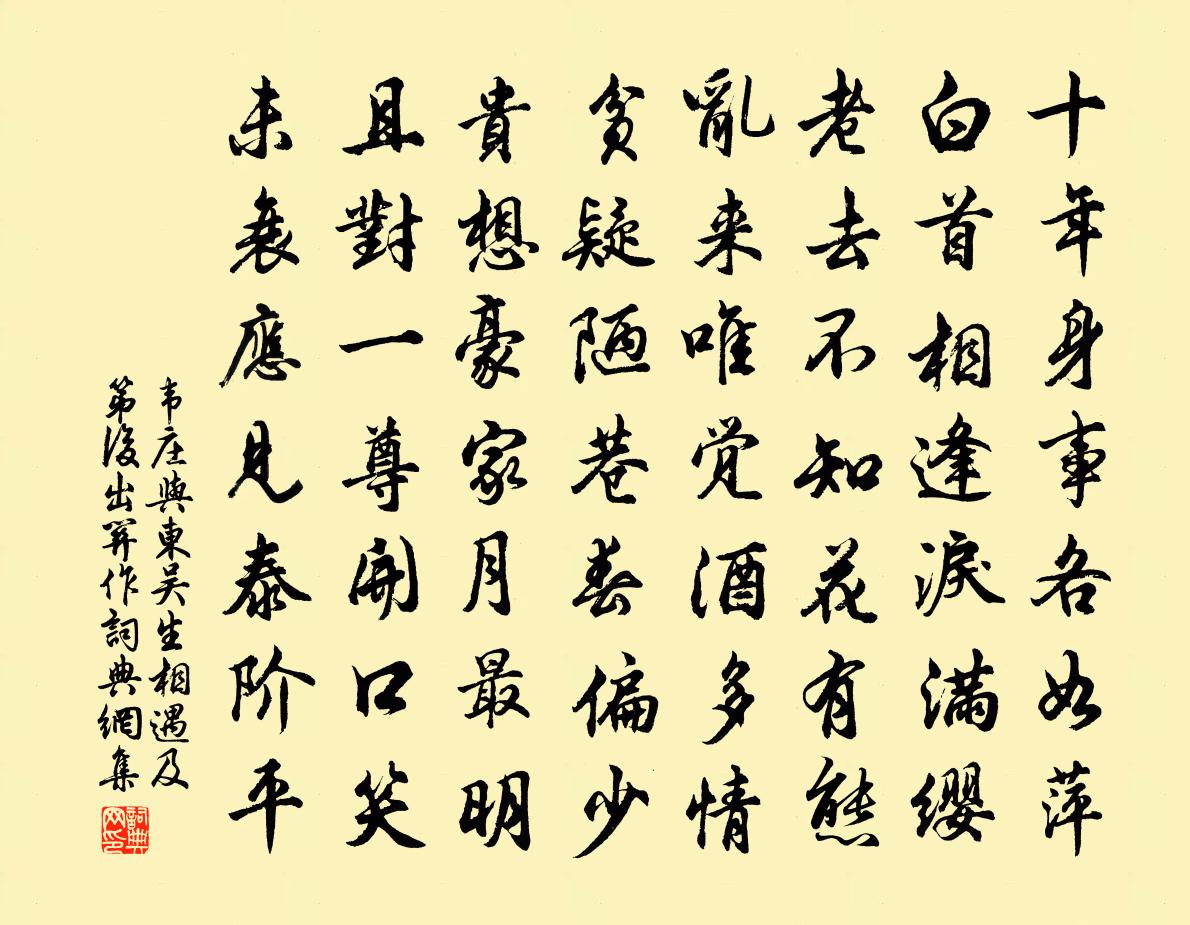 十年身事各如萍
白首相逢淚滿纓
老去不知花有態
亂来唯觉酒多情
貧疑陋巷春偏少
貴想豪家月最明
且對一尊開口笑
未衰應見泰阶平
韦庄與東吴生相遇及
第後出關作詞典網集
詞典
网印